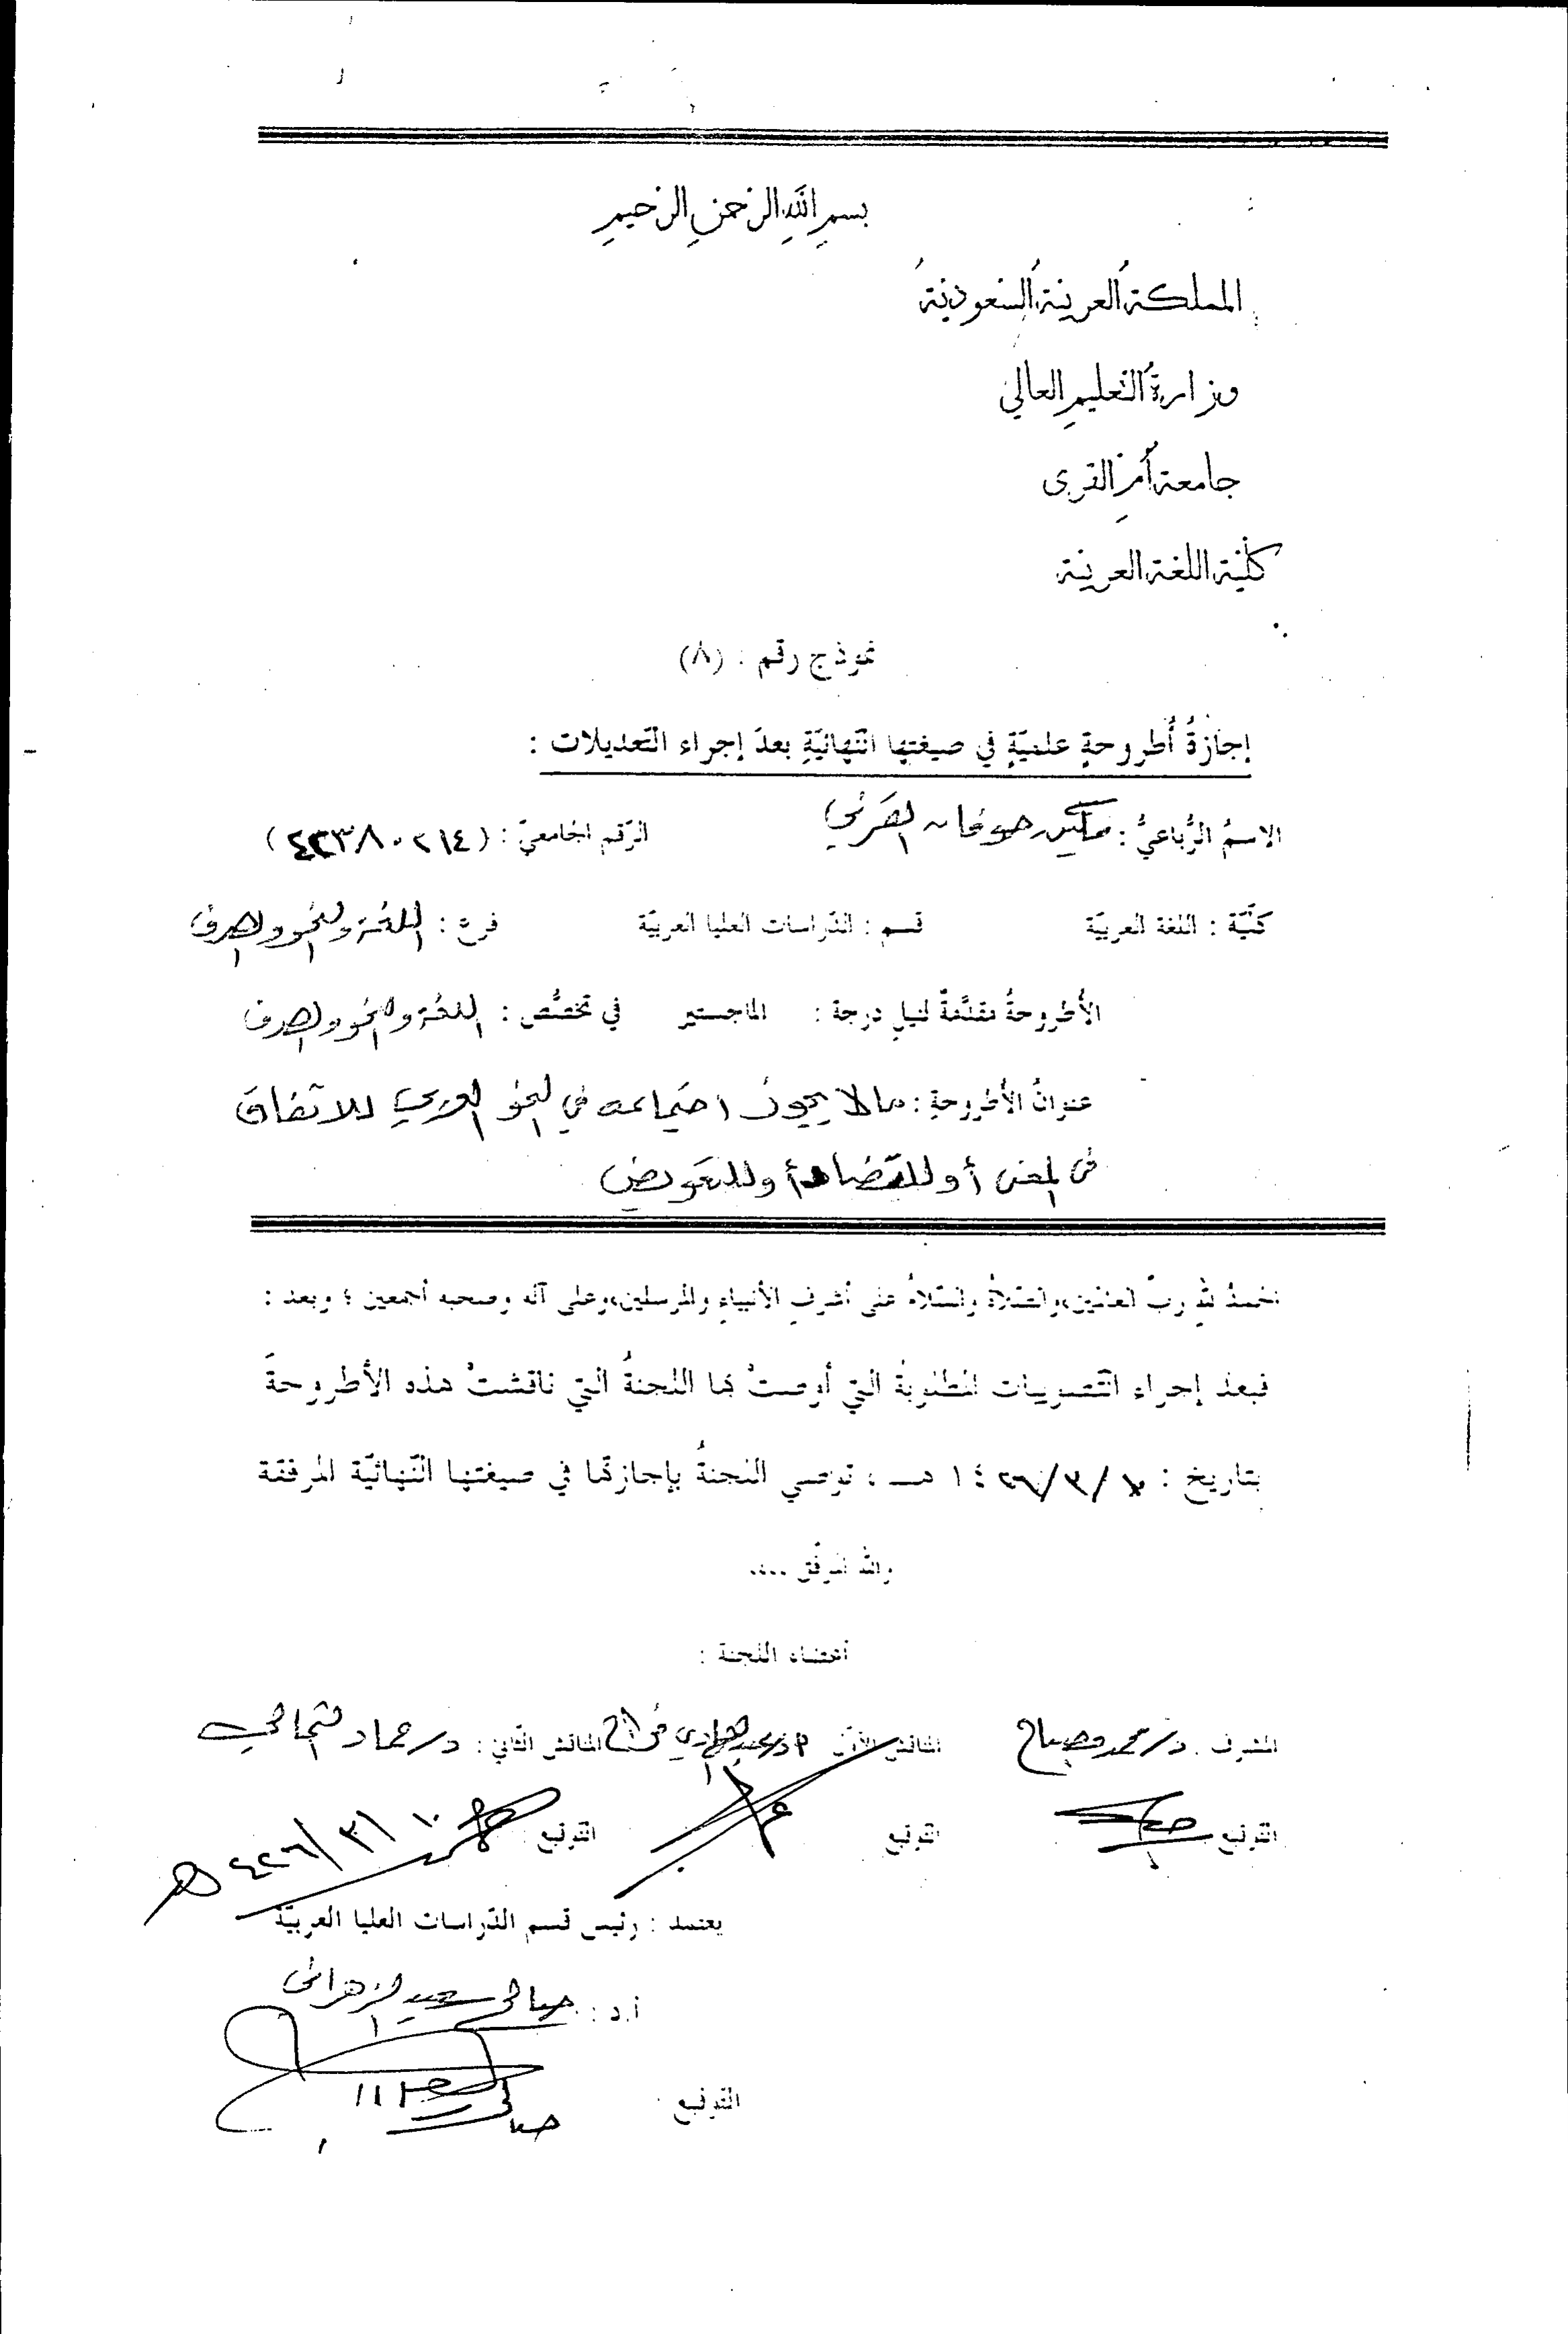 بسم الله الرحمن الرحيم
المملكة العربية السعودية
وزارة التعليم العالي
جامعة أم القرى
كلية اللغة العربية
نموذج رقم : (٨)
إجازةُ أُطروحةٍ علميّةٍ في صيغتها النّهائيّةِ بعدَ إجراء التّعديلات :
الاسمُ الرُّباعيُّ : صوفان الرّقم الجامعيّ : (٤٢٣٨٠٢١٤)
كلّيّة : اللغة العربيّة قسم : الدّراسات العليا العربيّة فرع : اللغة والنحو والصرف
الأطروحةُ مقدَّمةٌ لنيلِ درجة : الماجستير في تخصُّص : اللغة والنحو والصرف
عنوانُ الأطروحةِ : ما لا يجوز اجتماعه في النحو العربي للاتفاق
في المعنى أو للتضاد أو للتعويض
الحمدُ للهِ ربِّ العالمين، والصّلاةُ والسّلامُ على أشرفِ الأنبياءِ والمرسلين، وعلى آله وصحبه أجمعين ؛ وبعد :
فبعدَ إجراء التّصويبات المطلوبة التي أوصتْ بها اللجنةُ التي ناقشتْ هذه الأطروحةَ
بتاريخ : / ٣ / ١٤٢٦ هـ ، توصي اللجنةُ بإجازتها في صيغتها النّهائيّة المرفقة
والله الموفّق ....
أعضاء اللجنة :
المشرف : د. محمد مصباح المناقش الأوّل المناقش الثّاني : د. حماد الثمالي
التوقيع التوقيع التوقيع
يعتمد : رئيس قسم الدّراسات العليا العربيّة
أ.د : صالح سعيد الزهراني
التوقيع